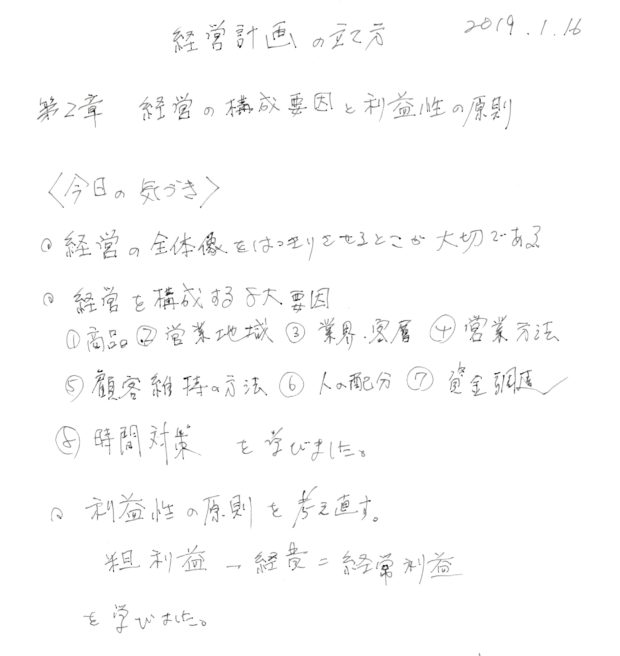 経営計画の立て方 2019.1.16
第2章 経営の構成要因と利益性の原則
〈今日の気づき〉
○ 経営の全体像をはっきりさせることが大切である
○ 経営を構成する8大要因
①商品②営業地域 ③ 業界、客層 ④ 営業方法
⑤ 顧客維持の方法 ⑥ 人の配分 ⑦ 資金調達
⑧ 時間対策 を学びました。
○ 利益性の原則を考え直す。
粗利益 − 経費 = 経常利益
を学びました。